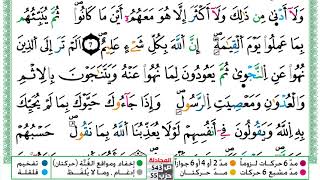 وَلَآ أَدْنَىٰ مِن ذَٰلِكَ وَلَآ أَكْثَرَ إِلَّا هُوَ مَعَهُمْ أَيْنَ مَا كَانُوا۟ ۖ ثُمَّ يُنَبِّئُهُم
بِمَا عَمِلُوا۟ يَوْمَ ٱلْقِيَٰمَةِ ۚ إِنَّ ٱللَّهَ بِكُلِّ شَىْءٍ عَلِيمٌ ٧ أَلَمْ تَرَ إِلَى ٱلَّذِينَ
نُهُوا۟ عَنِ ٱلنَّجْوَىٰ ثُمَّ يَعُودُونَ لِمَا نُهُوا۟ عَنْهُ وَيَتَنَٰجَوْنَ بِٱلْإِثْمِ
وَٱلْعُدْوَٰنِ وَمَعْصِيَتِ ٱلرَّسُولِ ۖ وَإِذَا جَآءُوكَ حَيَّوْكَ بِمَا لَمْ يُحَيِّكَ
بِهِ ٱللَّهُ وَيَقُولُونَ فِىٓ أَنفُسِهِمْ لَوْلَا يُعَذِّبُنَا ٱللَّهُ بِمَا نَقُولُ ۚ حَسْبُهُمْ
مدّ 6 حركات لزوماً مدّ 2 أو 4 أو 6 جوازاً المجادلة إخفاء ومواقع الغُنَّة (حركتان) تفخيم
مدّ مشبع 6 حركات مدّ حركتان 543 55 إدغام ، وما لا يُلفظ قلقلة